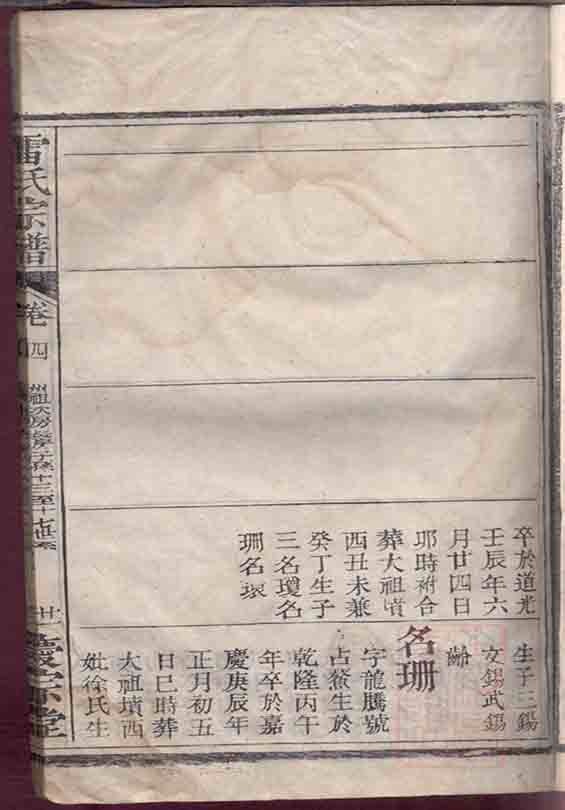 卒於道光
壬辰年六
月廿四日
耶時祔合
葬大祖墳
酉丑未兼
癸丁生子
三名瓊名
珊名琅
生子三錫
文錫武錫
齡
名珊
字龍騰號
占鰲生於
乾隆丙午
年卒於嘉
慶庚辰年
正月初五
日巳時葬
大祖墳西
妣徐氏生
雷氏宗譜
卷四
廿二
慶宗堂